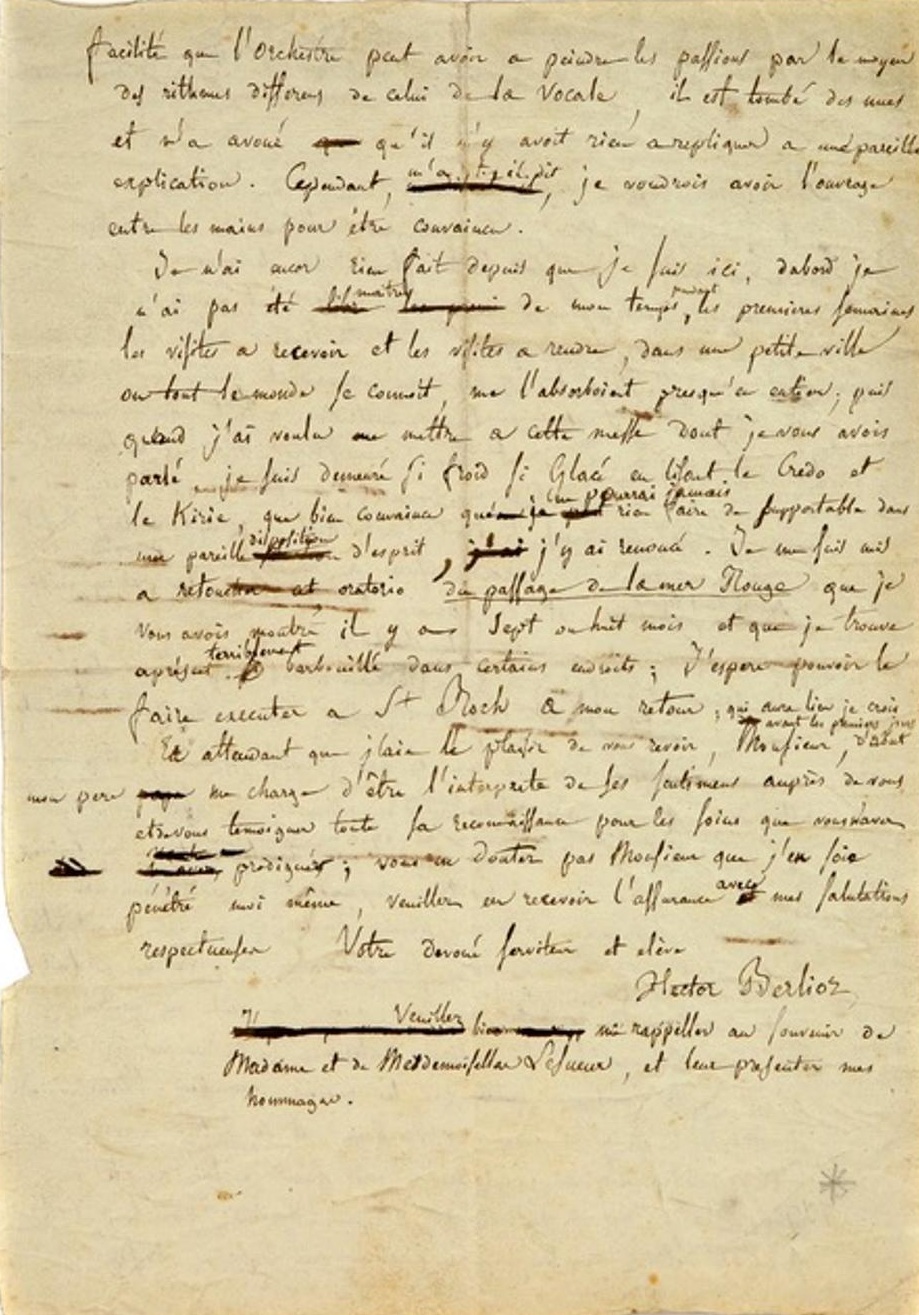 facilité que l'Orchestre peut avoir a peindre les passions par le moyen
des rithmes differens de celui de la Vocale, il est tombé des nues
et m'a avoué qu'il n'y avoit rien a repliquer a une pareille
explication. Cependant, m'a-t-il dit, je voudrois avoir l'ouvrage
entre les mains pour être convaincu.
Je n'ai encor rien fait depuis que je suis ici, dabord je
n'ai pas été maître de mon temps, pendant les premieres semaines
les visites a recevoir et les visites a rendre, dans une petite ville
ou tout le monde se connoit, me l'absorboient presqu'en entier; puis
quand j'ai voulu me mettre a cette messe dont je vous avois
parlé, je suis demeuré si froid si Glacé en lisant le Credo et
le Kirie, que bien convaincu que je ne pourrai jamais rien faire de supportable dans
une pareille disposition d'esprit, j'y ai renoncé. Je me suis mis
a retoucher cet oratorio du passage de la mer Rouge que je
vous avois montré il y a Sept ou huit mois et que je trouve
aprésent terriblement barbouillé dans certains endroits; J'espere pouvoir le
faire executer a St Roch a mon retour, qui aura lieu je crois
avant les premiers jours
d'aout
En attendant que j'aie le plaisir de vous revoir, Monsieur,
mon pere me charge d'être l'interprete de ses sentimens auprès de vous
et de vous temoigner toute sa reconnaissance pour les soins que vous m'avez
prodigués; vous ne doutez pas Monsieur que j'en sois
pénétré moi même, veuillez en recevoir l'assurance avec mes salutations
respectueuses Votre devoué serviteur et elève
Hector Berlioz
Veuillez bien me rappeller au souvenir de
Madame et de Mesdemoiselles Lesueur, et leur presenter mes
hommages.